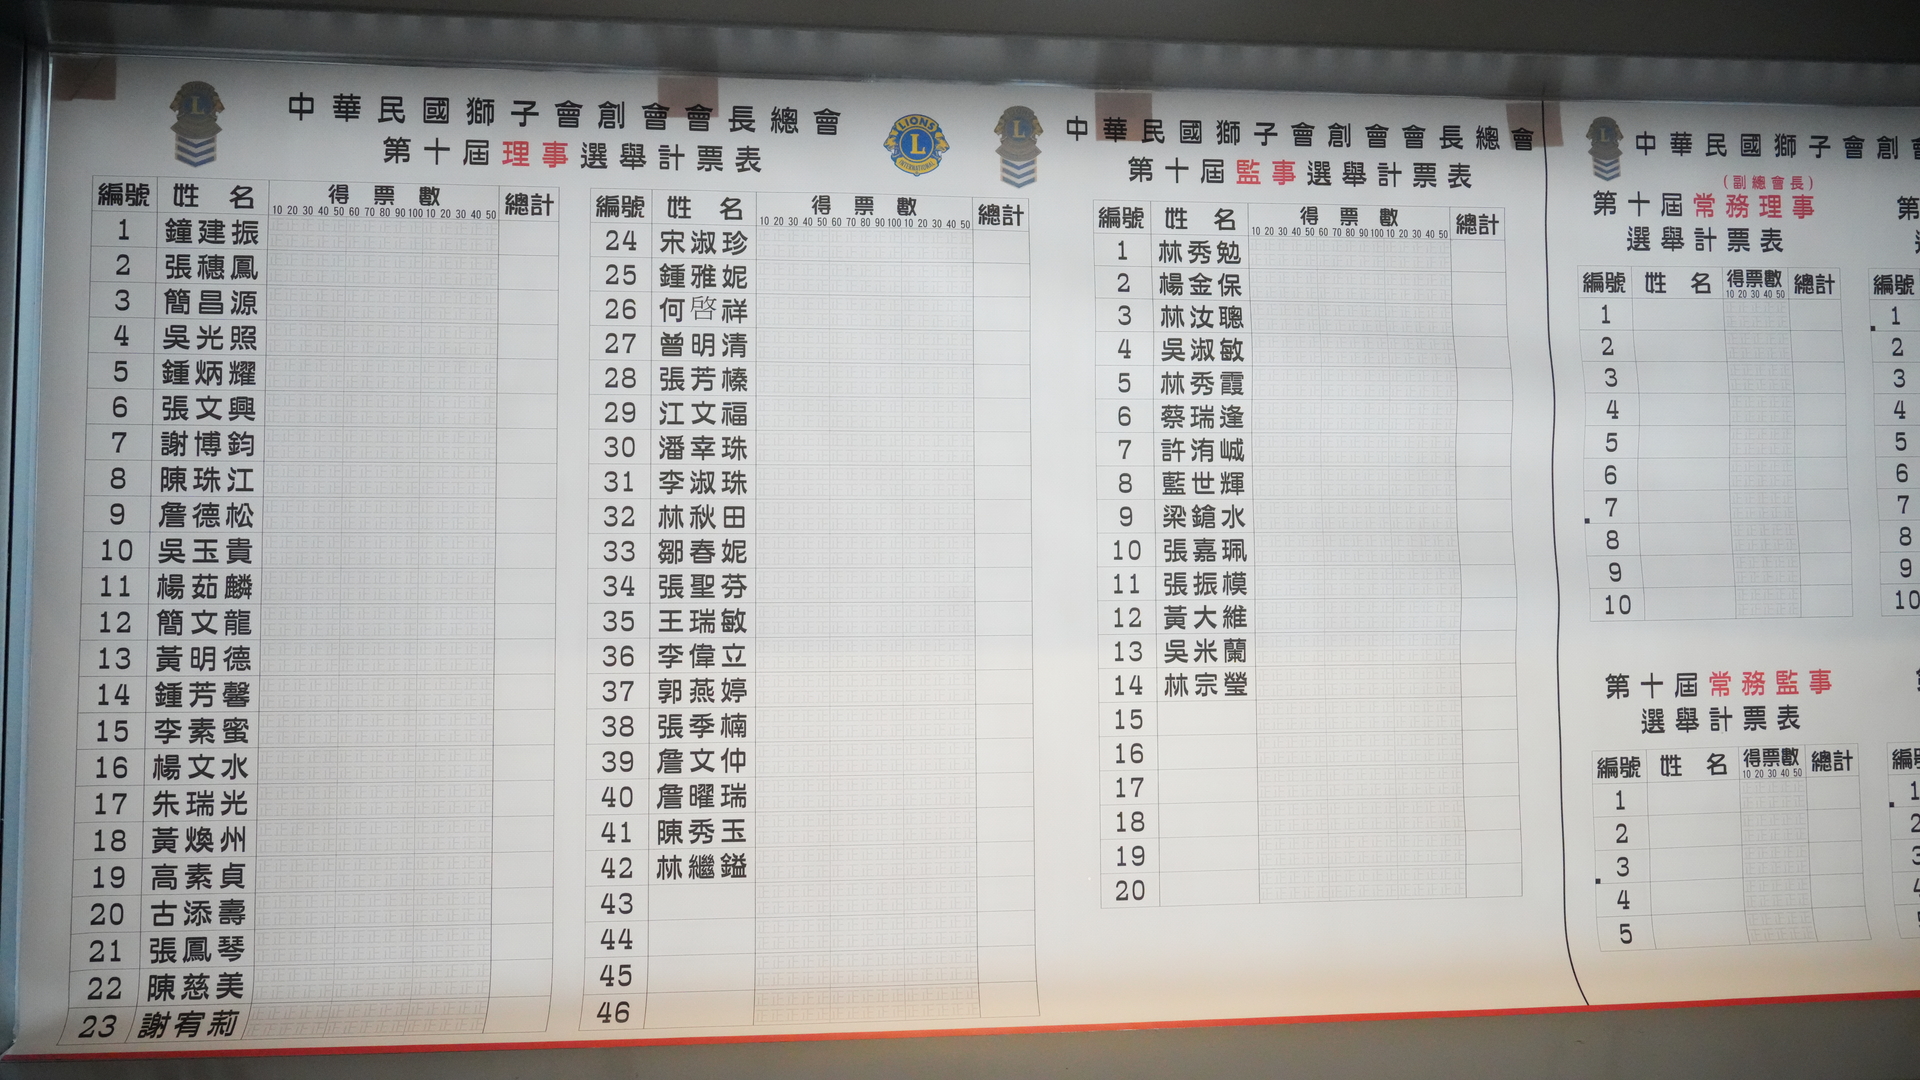 中華民國獅子會創會會長總會
第十屆理事選舉計票表
編號 姓名 得票數 總計
10 20 30 40 50 60 70 80 90 100 10 20 30 40 50
1 鐘建振
2 張穗鳳
3 簡昌源
4 吳光照
5 鍾炳耀
6 張文興
7 謝博鈞
8 陳珠江
9 詹德松
10 吳玉貴
11 楊茹麟
12 簡文龍
13 黃明德
14 鍾芳馨
15 李素蜜
16 楊文水
17 朱瑞光
18 黃煥州
19 高素貞
20 古添壽
21 張鳳琴
22 陳慈美
23 謝宥莉
編號 姓名 得票數 總計
10 20 30 40 50 60 70 80 90 100 10 20 30 40 50
24 宋淑珍
25 鍾雅妮
26 何啓祥
27 曾明清
28 張芳榛
29 江文福
30 潘幸珠
31 李淑珠
32 林秋田
33 鄒春妮
34 張聖芬
35 王瑞敏
36 李偉立
37 郭燕婷
38 張季楠
39 詹文仲
40 詹曜瑞
41 陳秀玉
42 林繼鎰
43
44
45
46
LIONS
L
INTERNATIONAL
中華民國獅子會創會會長總會
第十屆監事選舉計票表
編號 姓名 得票數 總計
10 20 30 40 50 60 70 80 90 100 10 20 30 40 50
1 林秀勉
2 楊金保
3 林汝聰
4 吳淑敏
5 林秀霞
6 蔡瑞逢
7 許洧峸
8 藍世輝
9 梁鎗水
10 張嘉珮
11 張振模
12 黃大維
13 吳米蘭
14 林宗瑩
15
16
17
18
19
20
中華民國獅子會創會
(副總會長)
第十屆常務理事
選舉計票表
編號 姓名 得票數 總計
10 20 30 40 50
1
2
3
4
5
6
7
8
9
10
第十屆常務監事
選舉計票表
編號 姓名 得票數 總計
10 20 30 40 50
1
2
3
4
5
第
編號
1
2
3
4
5
6
7
8
9
10